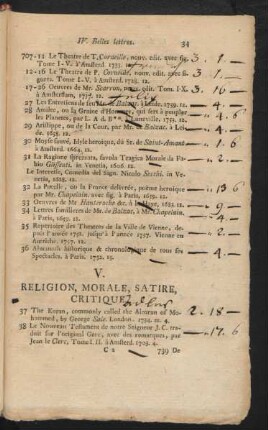 IV. Belles lettres. 34
707-11 Le Theatre de T. Corneille, nouv. edit. avec fig. 3 . 1 —
Tome I-V. à Amsterd. 1733.
12-16 Le Theatre de P. Corneille, nouv. edit. avec fi- 3 . 1 —
gures. Tome I-V. à Amsterd. 12.
17-26 Oeuvres de Mr. Scarron, nouv. edit. Tom. I-X. 3 . 16
à Amsterdam, 1737. 12.
27 Les Entretiens de feu Mr. de Balzac. à Leide. 1659. 12. — 4 .
28 Amilec, ou la Graine d'Hommes, qui sert à peupler
les Planetes, par L. A. d. B** Luneville. 1753. 12.
29 Aristippe, ou de la Cour, par Mr. de Balzac. à Lei-
de. 12.
30 Moyse sauvé, Idyle heroique, du Sr. de Saint-Amant
à Amsterd. 1664. 12.
31 La Ragione sprezzata, favola Tragica Morale de Fa-
bio in Venetia, 12.
Le Interesse, Comedia del Sign. Nicolo Secchi. in Ve-
netia, 12.
32 La Pucelle, ou la France delivrée, poëme heroique
par Mr. Chapelain. avec fig. à Paris. 1656. 12.
33 Oeuvres de Mr. à la Haye, 12.
34 Lettres familieres de Mr. de Balzac, à Mr. Chapelain.
à Paris, 12.
35 Repertoire des Theatres de la Ville de Vienne, de-
puis l'année 1752. jusqu'à l'année 1757. Vienne en
Autriche. 1757. 12.
36 Almanach historique & chronologique de tous les
Spectacles. à Paris. 1752. 12.
V.
RELIGION, MORALE, SATIRE,
CRITIQUE
37 The Koran, commonly called the Alcoran of Mo- 2 . 18 —
hammed, by George Sale. London. 1734. 4.
38 Le Nouveau Testament de notre Seigneur J. C. tra- — 17 . 6
duit sur l'original Grec, avec des remarques, par
Jean le Clerc, Tome I. II. à Amsterd. 1703. 4.
C 2 739 De